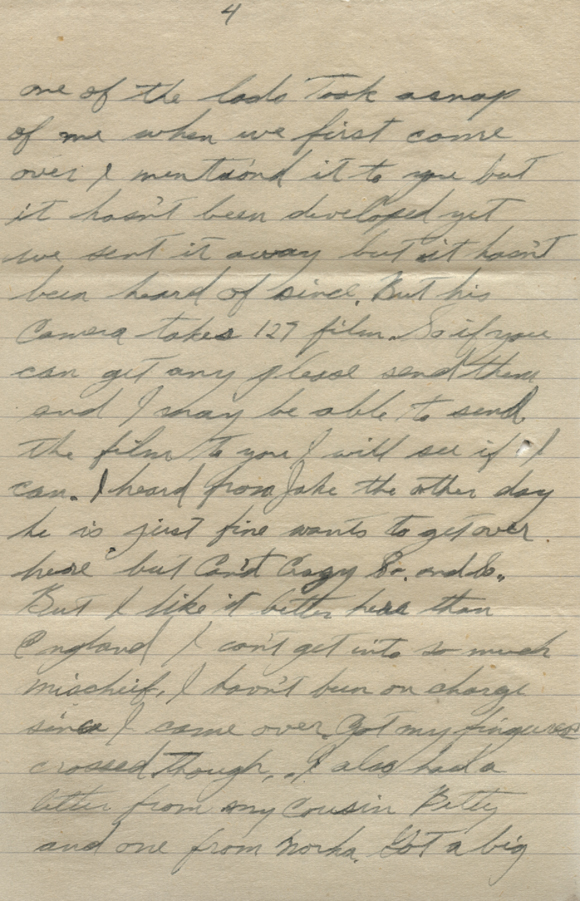 4
one of the lads took a snap
of me when we first come
over I mentiond it to you but
it hasn't been developed yet
we sent it away but it hasn't
been heard of since. But his
Camera takes 127 film. So if you
can get any please send them
and I may be able to send
the film to you I will see if I
can. I heard from Jake the other day
he is just fine wants to get over
here but Can't Crazy So. and So..
But I like it better here than
England I can't get into so much
mischief. I havn't been on charge
since I came over. Got my fingures
crossed though. I also had a
letter from my Cousin Betty
and one from Norha. Got a big